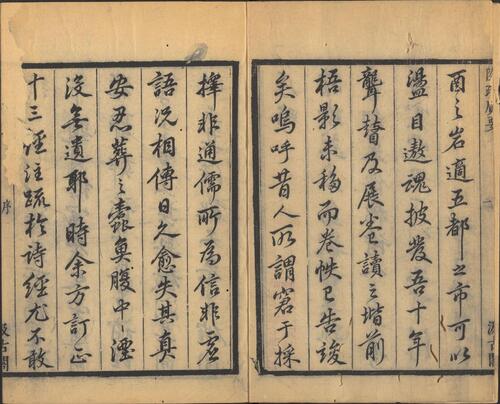 酉之岩適五都之市可以
盪目遨魂披發吾十年
聾瞽及展卷讀之堦前
梧影未移而卷帙已告竣
矣嗚呼昔人所謂窘于採
擇非通儒所為信非虛
語況相傳日久愈失其真
安忍葬之蠹魚腹中湮
沒無遺耶時余方訂正
十三經注疏於詩經尤不敢
序
汲古閣